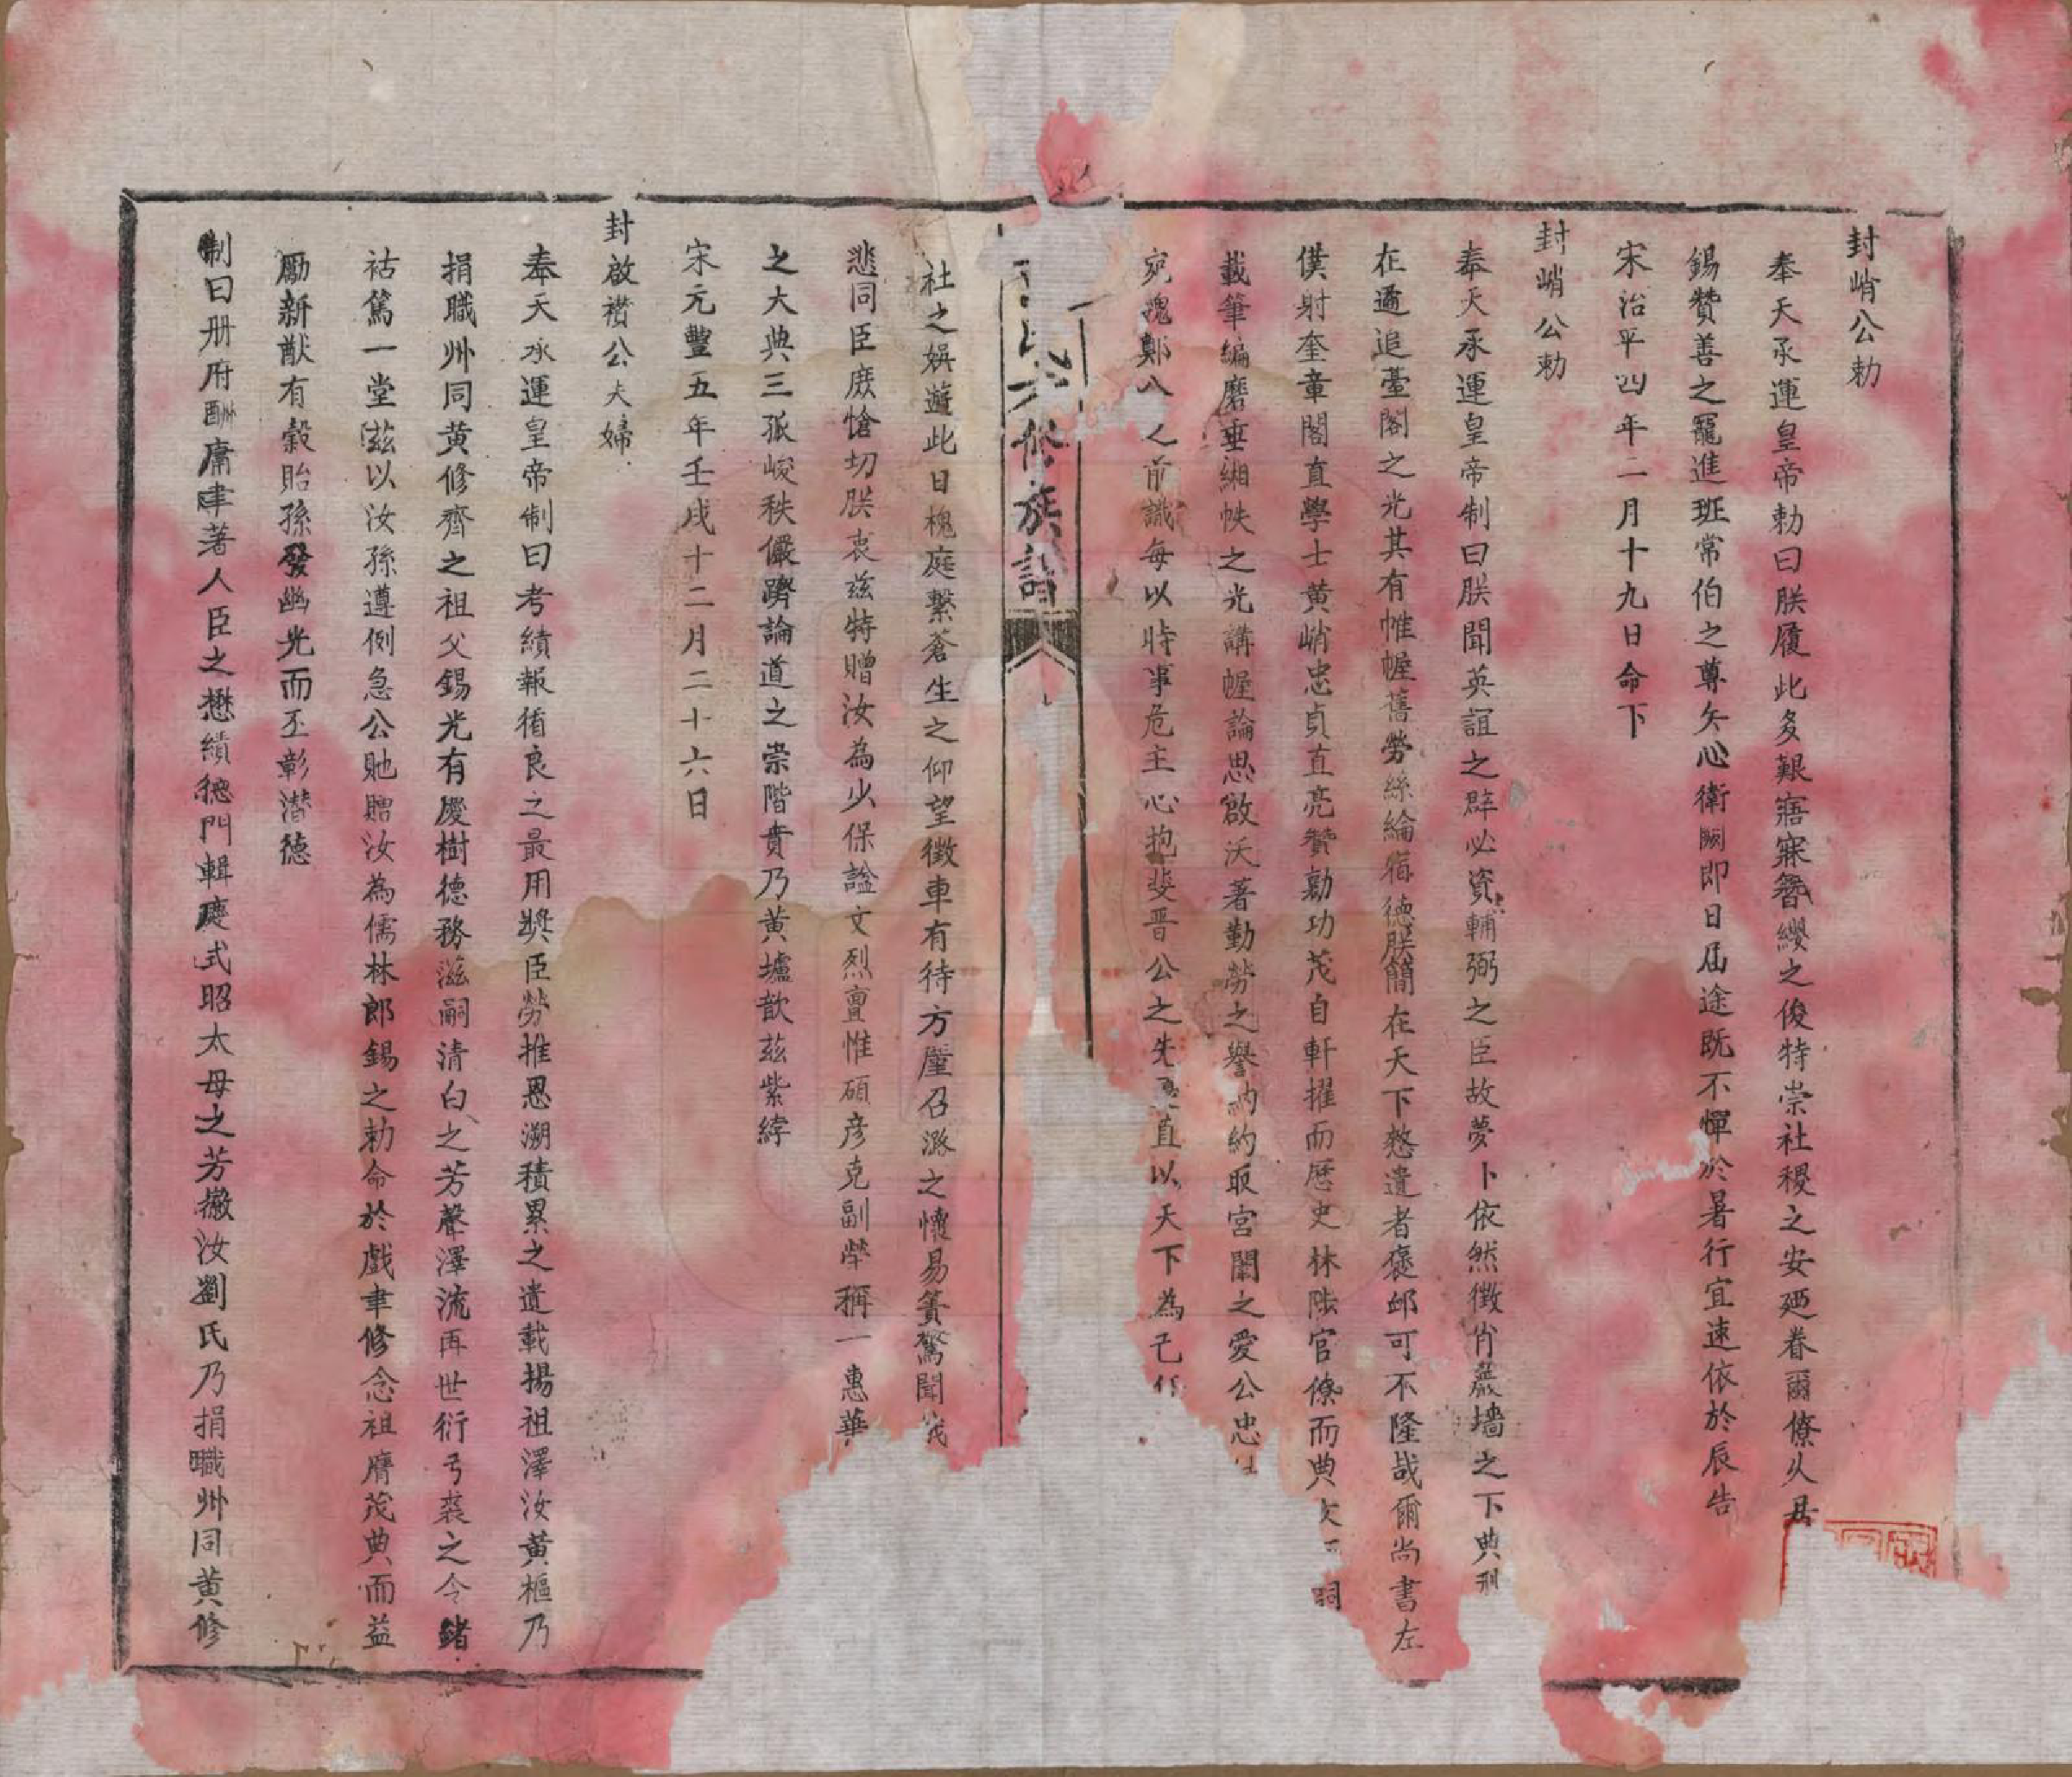 封峭公勅
奉天承運皇帝勅曰朕履此多艱寤寐簪纓之俊特崇社稷之安廼眷爾僚久居
錫贊善之寵進班常伯之尊矢心衛闕即日屆途既不憚於暑行宜速依於辰告
宋治平四年二月十九日命下
封峭公勅
奉天承運皇帝制曰朕聞英誼之辟必資輔弼之臣故夢卜依然徵肖巖墻之下典刑
在邇追臺閣之光其有帷幄舊勞絲綸宿德朕簡在天下憖遺者褒邮可不隆哉爾尚書左
僕射奎章閣直學士黄峭忠貞直亮贊勷功茂自軒擢而歷史林陟官僚而典
詞
載筆編磨垂緗帙之光講幄論思啟沃著勤勞之譽納約取宮闈之愛公忠
宛魂鄭八之前識每以時事危主心抱斐晋公之先直以天下為己
氏六修族譜
社之娛遊此日槐庭繫蒼生之仰望徵車有待方厪召潞之懷易簀驚聞
悲同臣庶愴切朕衷兹特贈汝為少保謚文烈亶惟碩彦克副犖稱一惠華
之大典三孤峻秩儼躋論道之崇階賁乃黄墟歆茲紫綍
宋元豐五年壬戌十二月二十六日
封啟襸公夫婦
奉天承運皇帝制曰考績報循良之最用奬臣勞推恩溯積累之遺載揚祖澤汝黄樞乃
捐職州同黄修齊之祖父錫光有慶樹德務滋嗣清白之芳聲澤流再世衍弓裘之令緒
祜篤一堂兹以汝孫遵例急公貤贈汝為儒林郎錫之勅命於戲聿修念祖膺茂典而益
勵新猷有穀貽孫發幽光而丕彰潛德
制曰册府酬庸聿著人臣之懋績德門輯慶式昭太母之芳徽汝劉氏乃捐職州同黄修